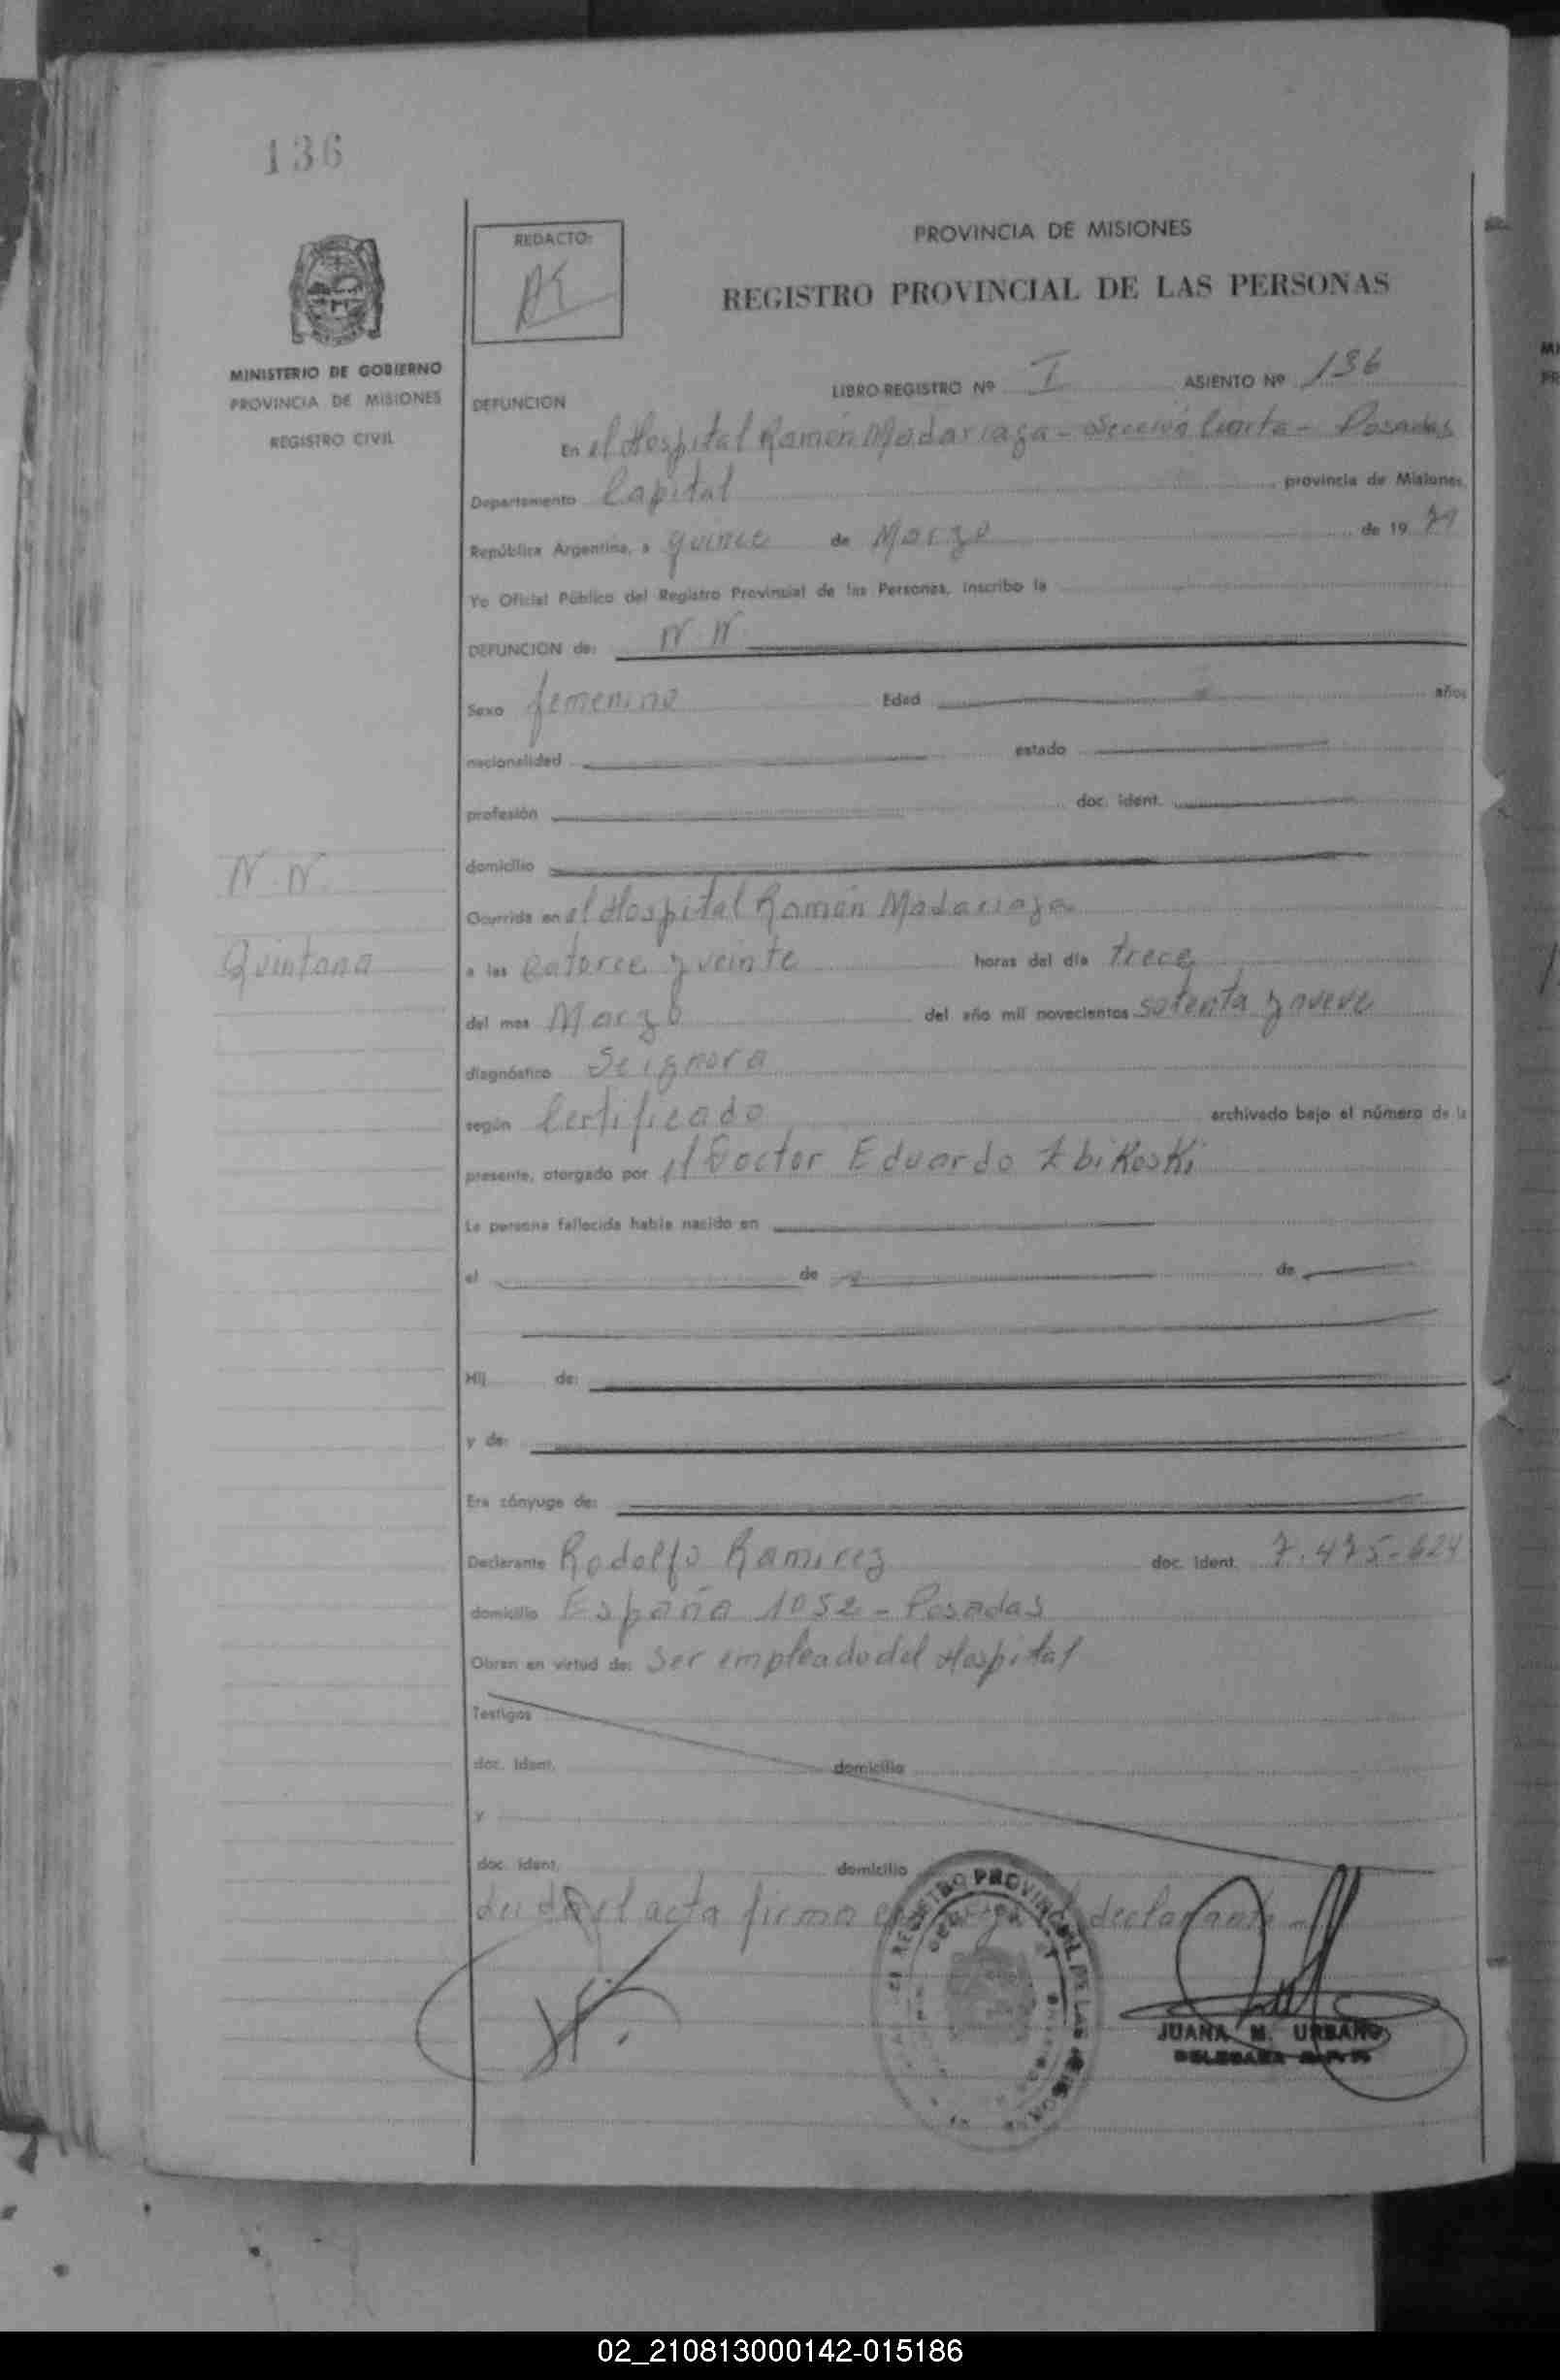 136
REDACTO:
PROVINCIA DE MISIONES
REGISTRO PROVINCIAL DE LAS PERSONAS
MINISTERIO DE GOBIERNO
PROVINCIA DE MISIONES
REGISTRO CIVIL
LIBRO-REGISTRO Nº I ASIENTO Nº 136
DEFUNCION
En el Hospital Ramón Madariaga - Sección Cuarta - Posadas
Departamento Capital provincia de Misiones,
República Argentina, a quince de Marzo de 19 79
Yo Oficial Público del Registro Provincial de las Personas, inscribo la
DEFUNCION de: N N
Sexo femenino Edad años
nacionalidad estado
profesión doc. ident.
domicilio
N. N.
Quintana
Ocurrida en el Hospital Ramón Madariaga
a las catorce y veinte horas del día trece
del mes Marzo del año mil novecientos setenta y nueve
diagnóstico Se ignora
según Certificado archivado bajo el número de la
presente, otorgado por el Doctor Eduardo Zbikoski
La persona fallecida había nacido en
el de de
Hij de:
y de:
Era cónyuge de:
Declarante Rodolfo Ramirez doc. ident. 7.475-624
domicilio España 1052 - Posadas
Obran en virtud de: ser empleado del Hospital
Testigos
doc. ident. domicilio
y
doc. ident. domicilio
el acta firma declarante
REGISTRO PROVINCIAL DE LAS PERSONAS
JUANA M. URBANO
DELEGADA R. P. P.
02_210813000142-015186